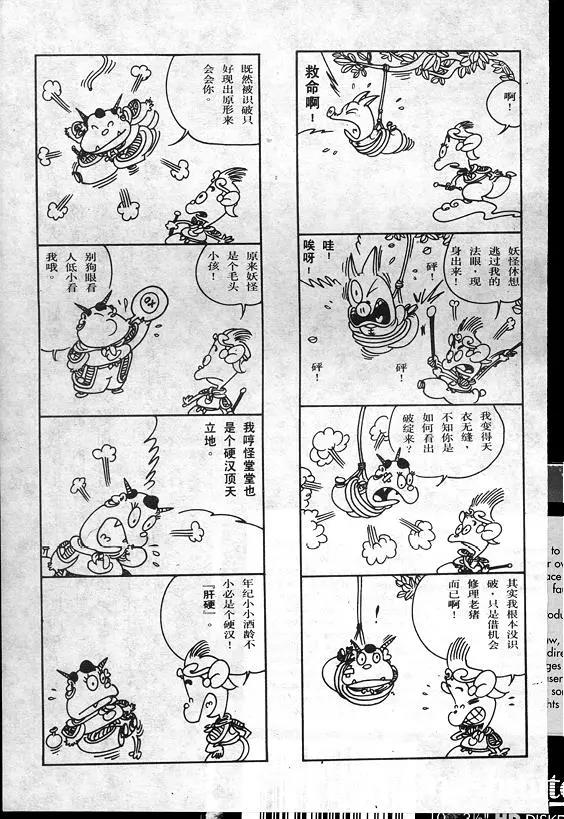 啊！
救命啊！
妖怪休想
逃过我的
法眼，现
身出来！
砰！
哇！
唉呀！
砰！
砰！
我变得天
衣无缝，
不知你是
如何看出
破绽来？
其实我根本没识
破，只是借机会
修理老猪
而已啊！
既然被识破只
好现出原形来
会会你。
原来妖怪
是个毛头
小孩！
OX
别狗眼看
人低小看
我哦。
我哼怪堂堂也
是个硬汉顶天
立地。
年纪小小酒龄不
小必是个硬汉！
『肝硬』。
to
r ov
ace
fau
odu
aw,
dire
ges
user
son
hts
HD DISKE